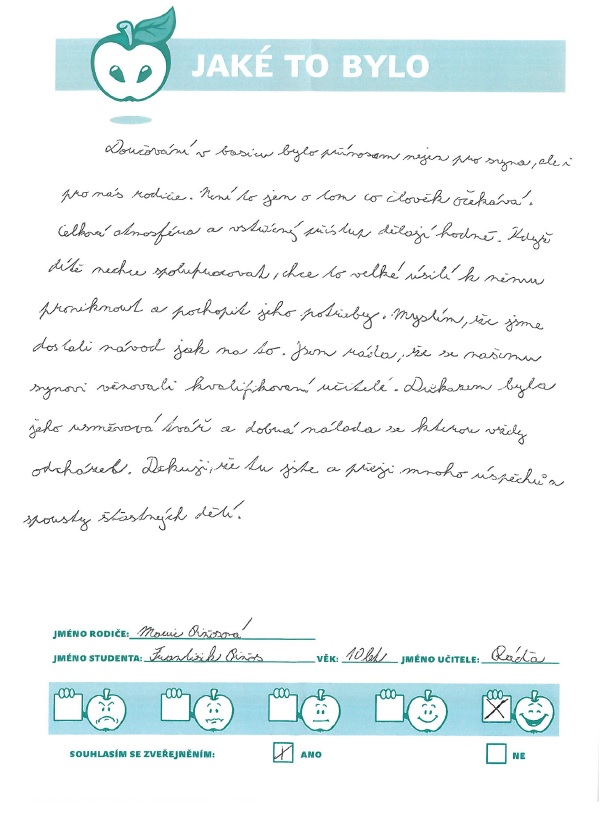 JAKÉ TO BYLO
Doučování v basicu bylo přínosem nejen pro syna, ale i
pro nás rodiče. Není to jen o tom co člověk očekává.
Celková atmosféra a vstřícný přístup dělají hodně. Když
dítě nechce spolupracovat, chce to velké úsilí k němu
proniknout a pochopit jeho potřeby. Myslím, že jsme
dostali návod jak na to. Jsem ráda, že se našemu
synovi věnovali kvalifikovaní učitelé. Důkazem byla
jeho usměvavá tvář a dobrá nálada se kterou vždy
odcházel. Děkuji, že tu jste a přeji mnoho úspěchů a
spousty šťastných dětí.
JMÉNO RODIČE:
JMÉNO STUDENTA: František VĚK: 10 let JMÉNO UČITELE: Ráďa
SOUHLASÍM SE ZVEŘEJNĚNÍM: ANO NE